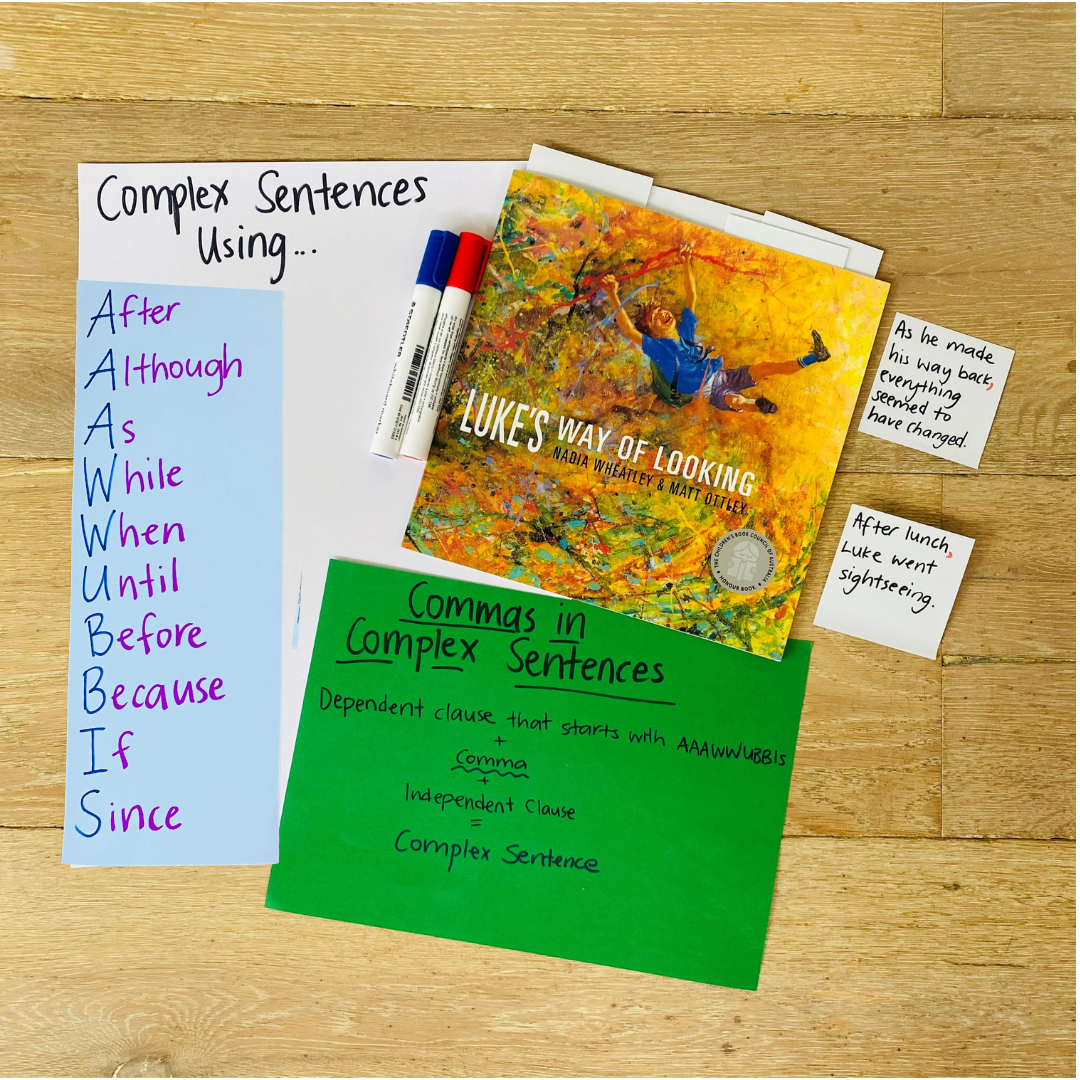 Complex Sentences
Using...
After
Although
As
While
When
Until
Before
Because
If
Since
STAEDTLER
LUKE'S WAY OF LOOKING
NADIA WHEATLEY & MATT OTTLEY
THE CHILDREN'S BOOK COUNCIL OF AUSTRALIA
HONOUR BOOK
As he made
his way back,
everything
seemed to
have changed.
After lunch,
Luke went
sightseeing.
Commas in
Complex Sentences
Dependent clause that starts with AAAWWUBBIS
+
Comma
+
Independent Clause
=
Complex Sentence